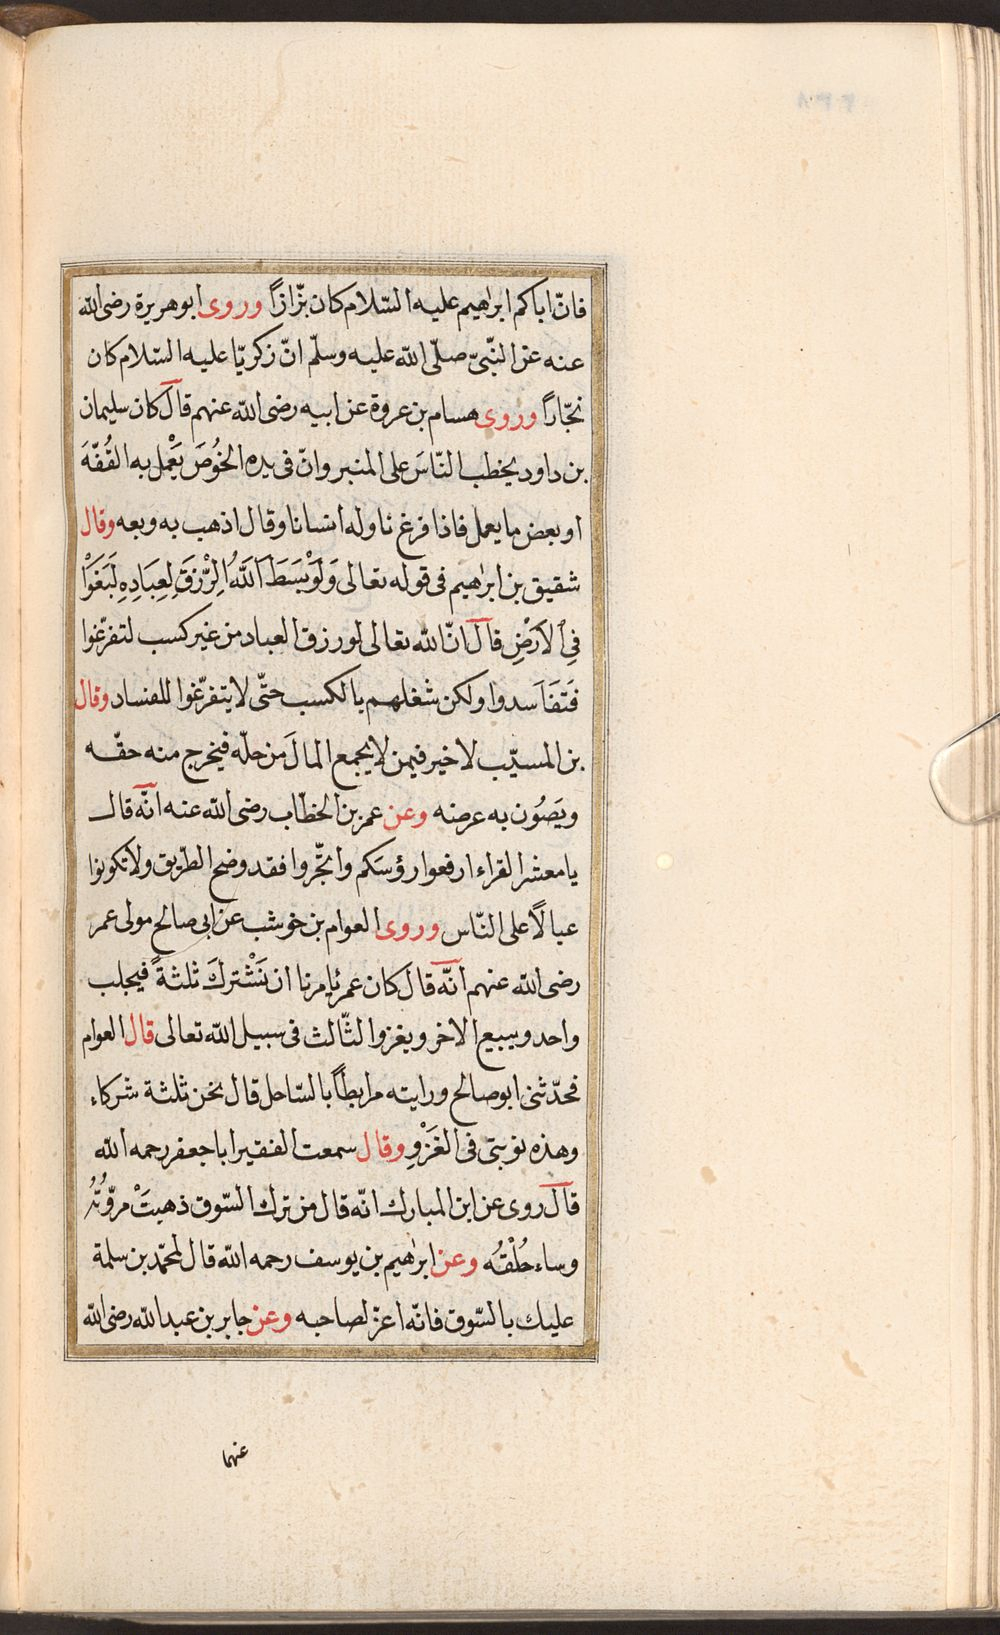 فانّ اباكم ابراهيم عليه السّلام كان بزّازاً وروى ابوهريرة رضى الله
عنه عن النّبىّ صلّى الله عليه وسلّم انّ زكريّا عليه السّلام كان
نجّاراً وروى هسام بن عروة عن ابيه رضى الله عنهم قال كان سليمان
بن داود يخطب النّاسَ على المنبر وانّ فى يده الخُوصَ يَعْمل به القُفّهَ
او بعض ما يعمل فاذا فرغ ناوله انسانا وقال اذهب به وبعه وقال
شقيق بن ابرٰهيم فى قوله تعالى وَلَوْ بَسَطَ اللَّهُ الرِّزْقَ لِعِبَادِهِ لَبَغَوْا
فِى الْاَرْضِ قال انّ الله تعالى لو رزق العباد من غير كسب لتفرّغوا
فَتَفَاسَدوا ولكن شغلهم بالكسب حتّى لا يتفرّغوا للفساد وقال
بن المسيّب لا خير فيمن لا يجمع المالَ من حلّه فيخرج منه حقّه
ويَصُون به عرضه وعن عمر بن الخطّاب رضى الله عنه انّه قال
يا معشر القراء ارفعوا رؤسَكم واتّجروا فقد وضح الطّريق ولا تكونوا
عيالًا على النّاس وروى العوام بن خوشب عن ابى صالح مولى عمر
رضى الله عنهم انّه قال كان عمر يامرنا ان نَشْتركَ ثلثةً فيجلب
واحد ويبيع الاخر ويغزو الثّالث فى سبيل الله تعالى قال العوام
فحدّثنى ابو صالح ورايته مرابطاً بالسّاحل قال نحن ثلثة شركاء
وهذه نوبتى فى الغَزْوِ وقال سمعت الفقير ابا جعفر رحمه الله
قال روى عن ابن المبارك انّه قال من ترك السّوق ذهبَتْ مروّتُهُ
وساء خُلْقُه وعن ابرٰهيم بن يوسف رحمه الله قال لمحمّد بن سلمة
عليك بالسّوق فانّه اعزّ لصاحبه وعن جابر بن عبد الله رضى الله
عنهما